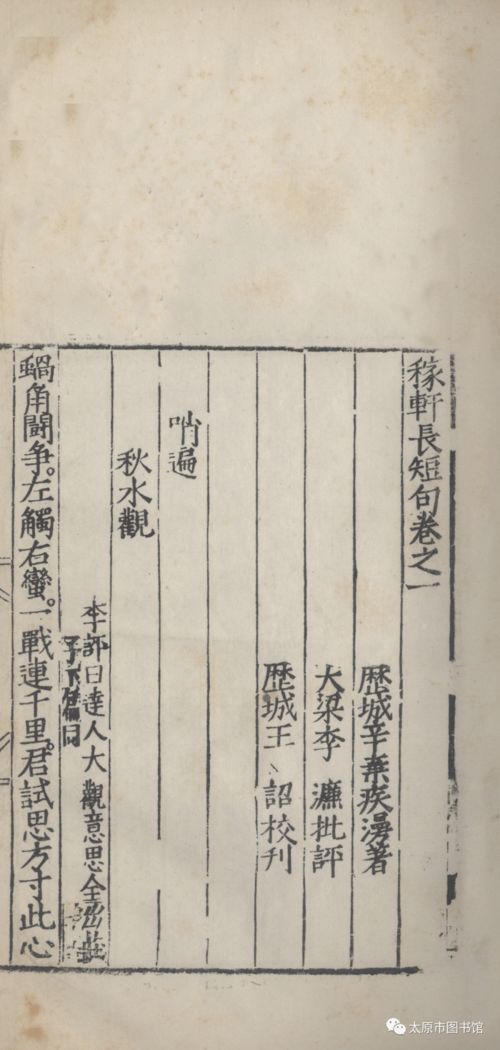 稼軒長短句卷之一
歷城辛棄疾漫著
大梁李 濂批評
歷城王 詔校刊
哨遍
秋水觀
李評曰達人大觀意思全
蝸角鬪爭。左觸右蠻。一戰連千里。君試思方寸此心
太原市图书馆